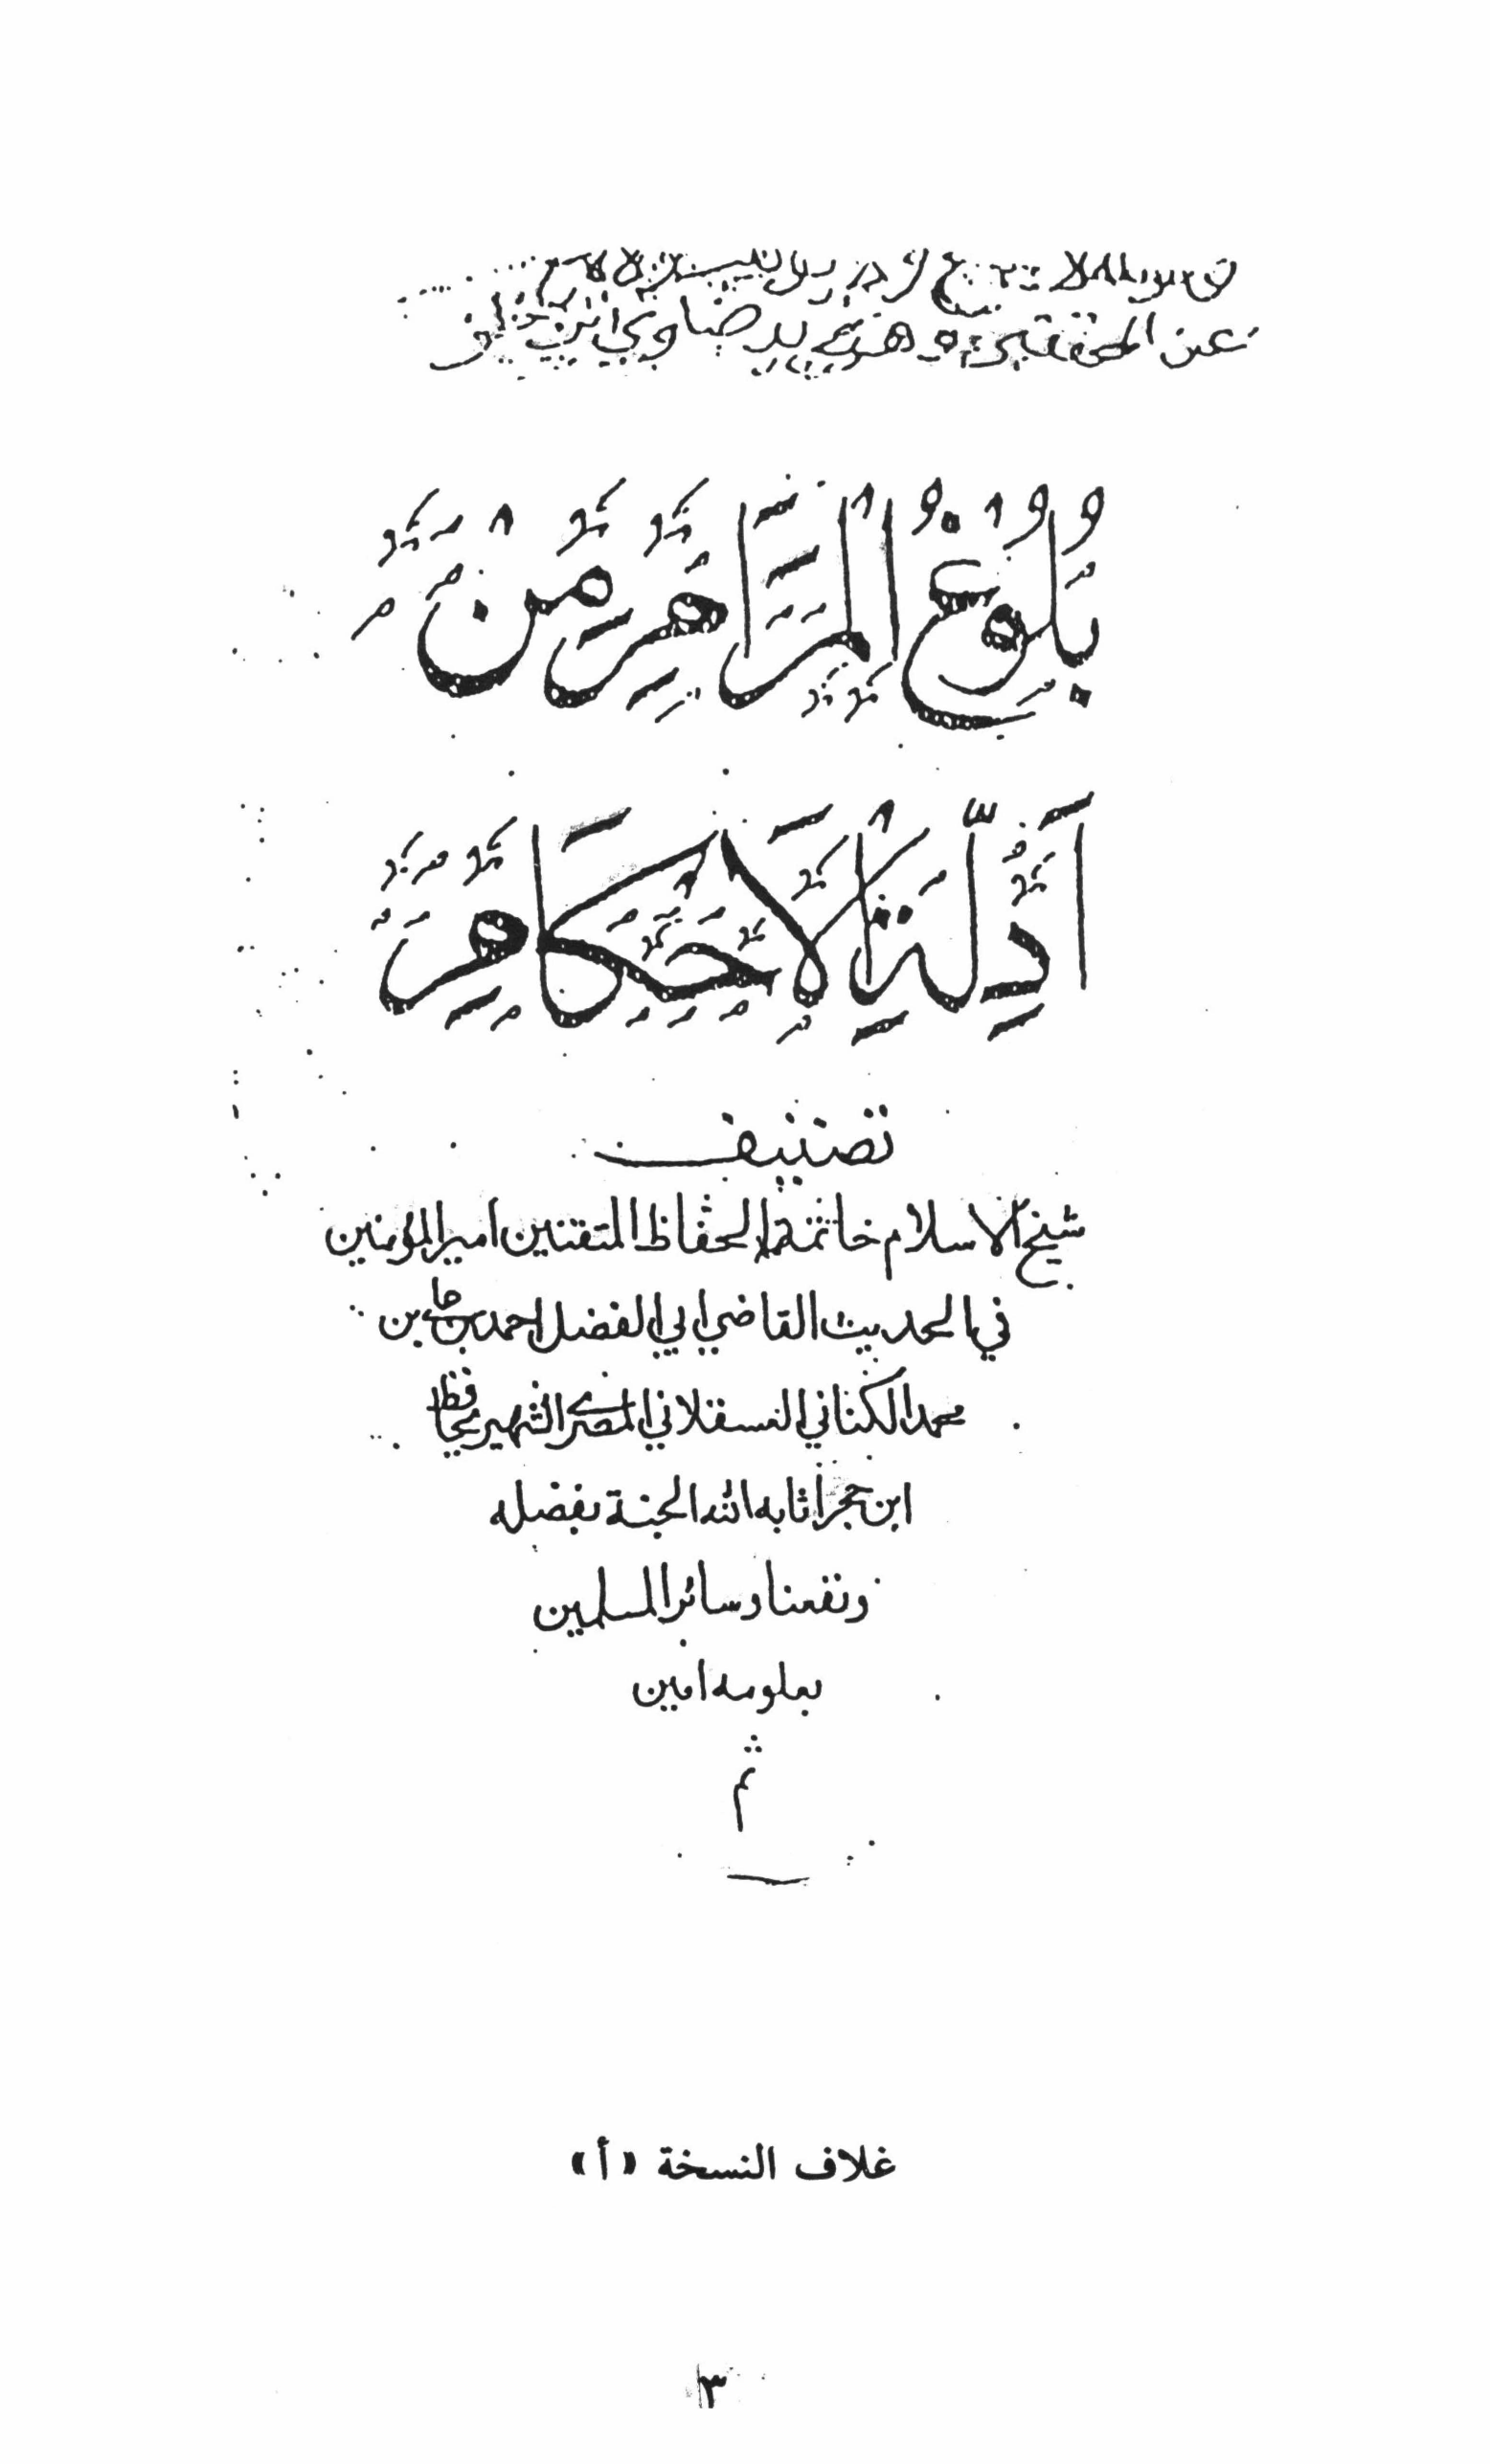 عن
بُلُوغُ الْمَرَامِ مِنْ
أَدِلَّةِ الْأَحْكَامِ
تصنيف
شيخ الاسلام خاتمة الحفاظ المتقنين امير المؤمنين
في الحديث القاضي ابي الفضل احمد بن علي بن
محمد الكناني العسقلاني المصري الشهير بالحافظ
ابن حجر اثابه الله الجنة بفضله
ونفعنا وسائر المسلمين
بعلومه امين
م
غلاف النسخة «أ»
١٣